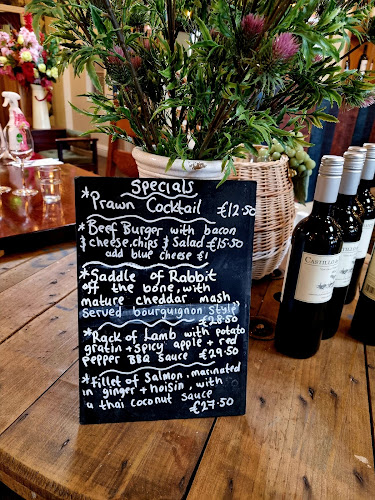 Specials
*Prawn Cocktail £12.50
*Beef Burger with bacon
& cheese, chips & Salad £15.50
add blue cheese £1
*Saddle of Rabbit
off the bone, with
mature cheddar mash
Served bourguignon style
£28.50
*Rack of Lamb with potato
gratin + spicy apple + red
pepper BBQ sauce £29.50
*Fillet of Salmon, marinated
in ginger + hoisin, with
a thai coconut sauce
£27.50